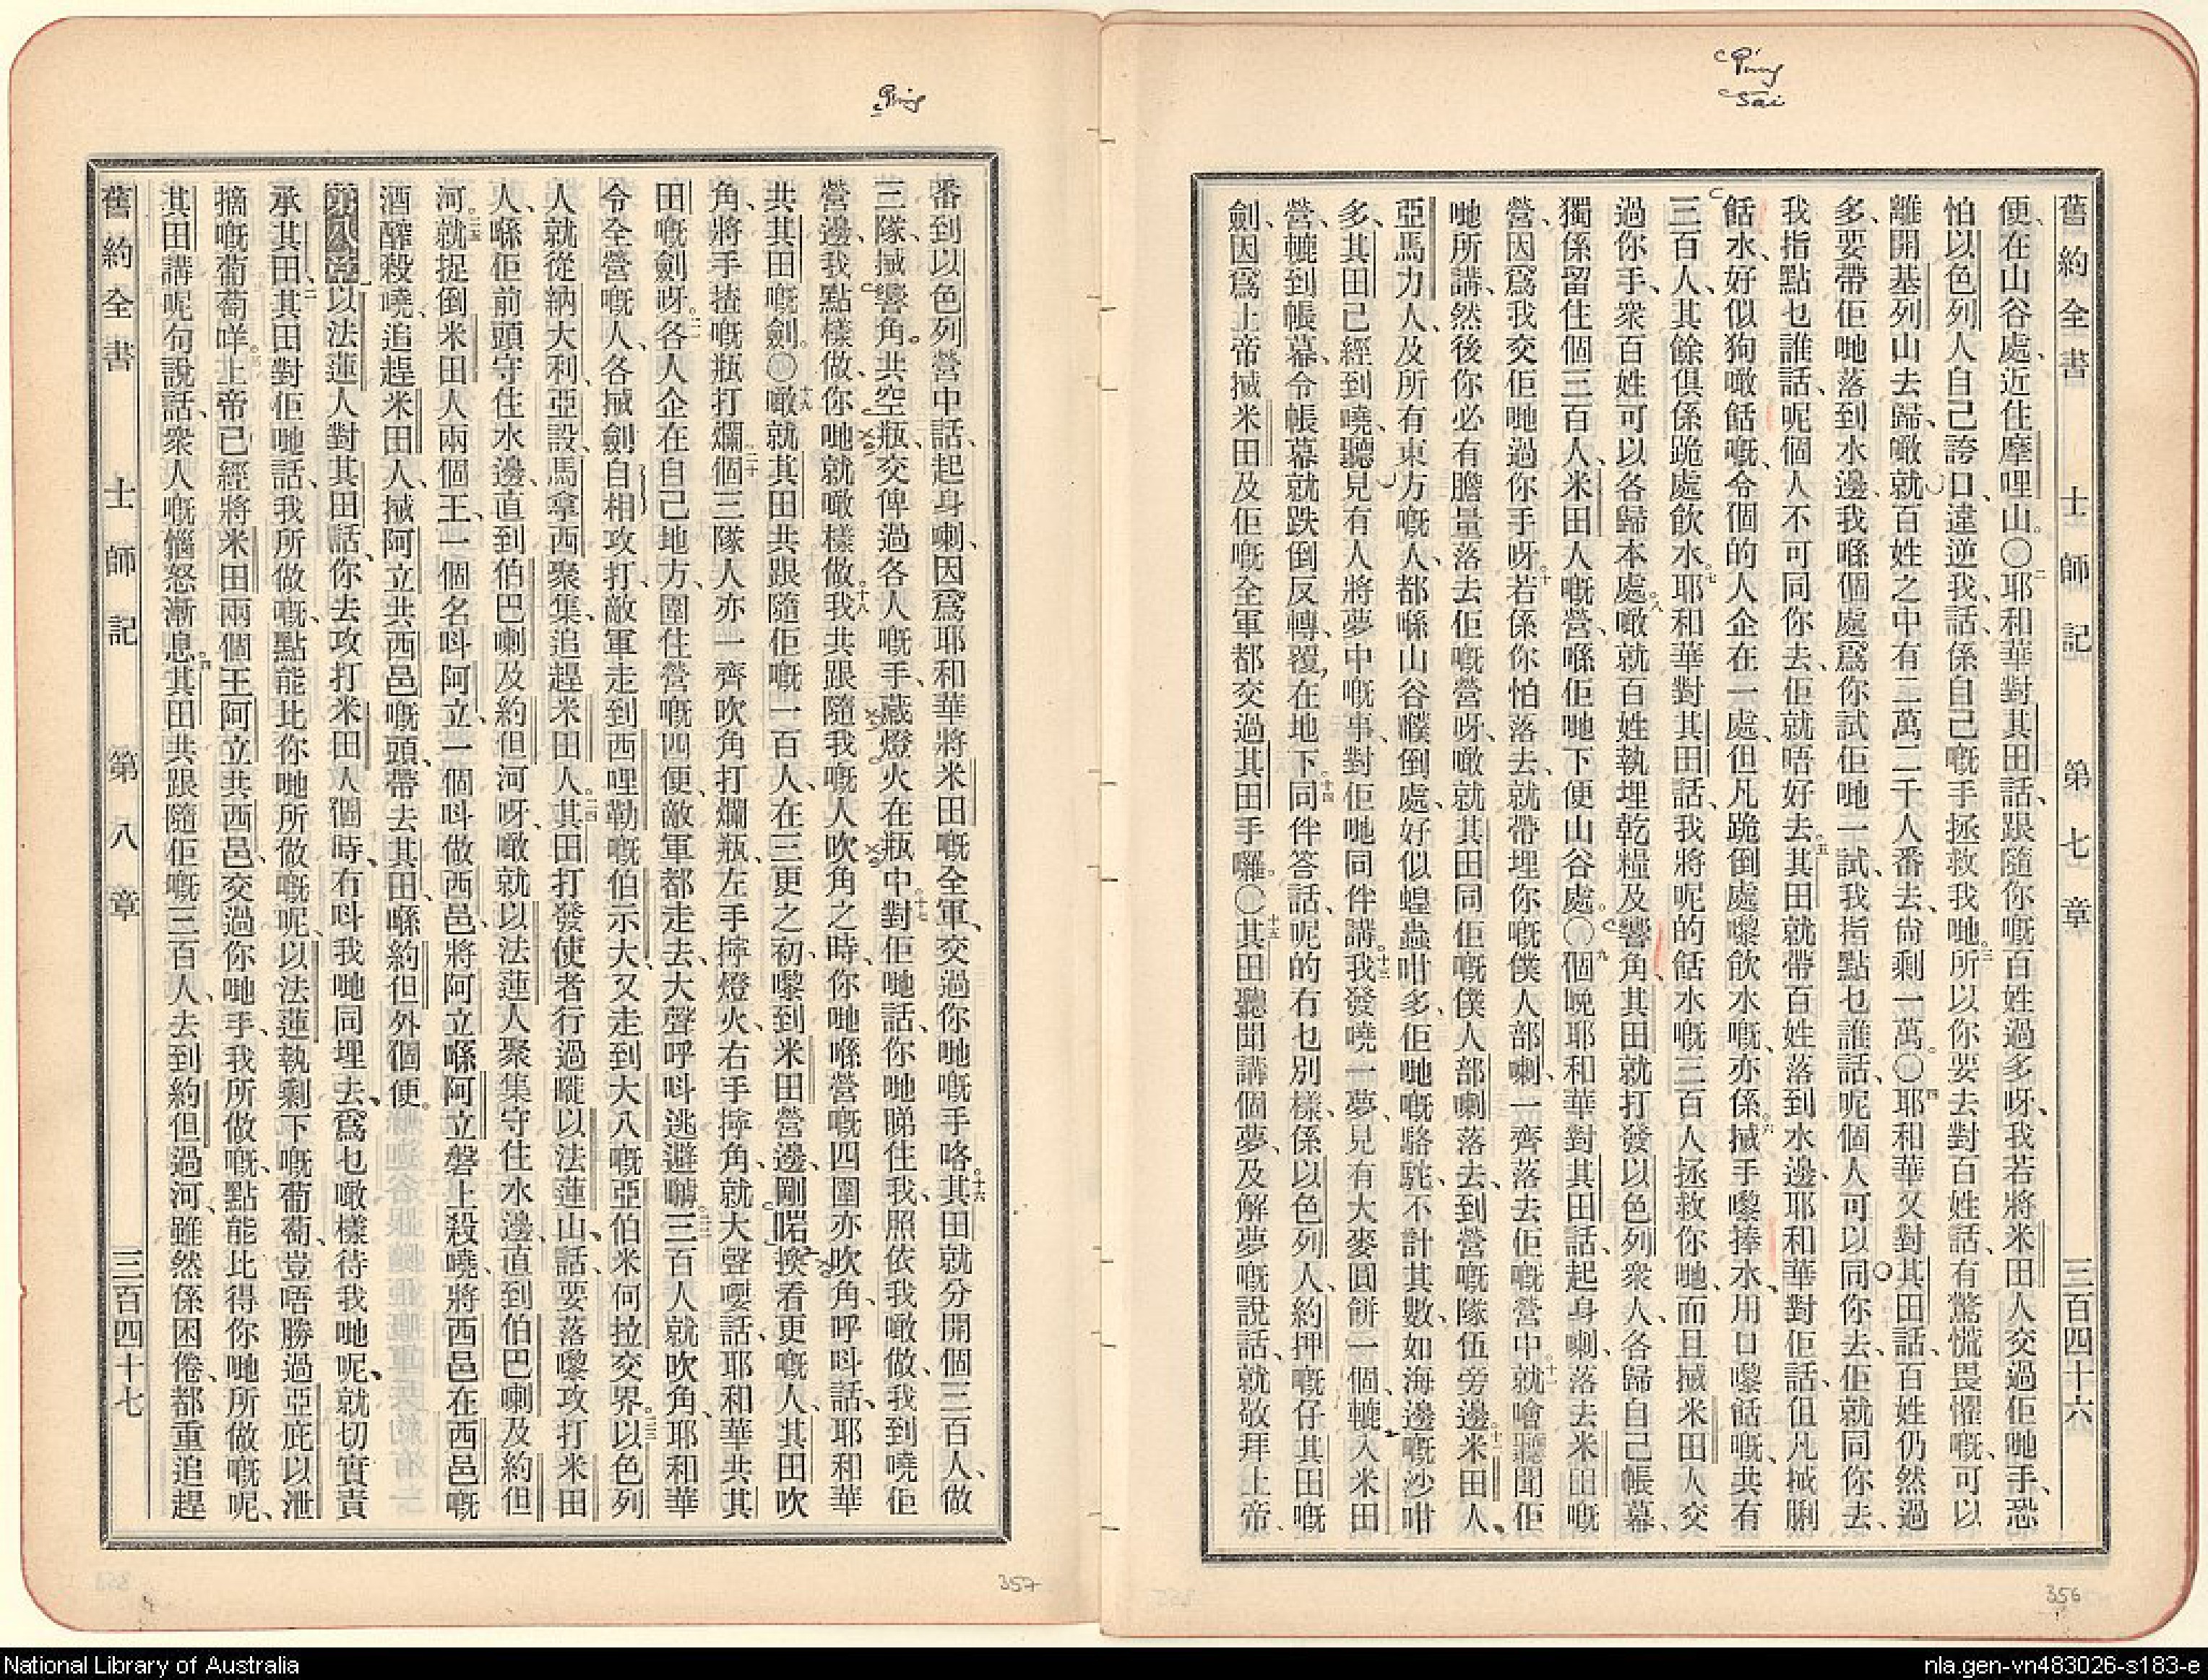 Ping
Sai
舊約全書 士師記 第七章 三百四十六
便、在山谷處、近住摩哩山。〇二耶和華對其田話、跟隨你嘅百姓過多呀、我若將米田人交過佢哋手、恐
怕以色列人自己誇口、違逆我、話、係自己嘅手拯救我哋。三所以你要去對百姓話、有驚慌畏懼嘅、可以
離開基列山去歸、噉就百姓之中有二萬二千人番去、尙剩一萬。〇四耶和華又對其田話、百姓仍然過
多、要帶佢哋落到水邊、我喺個處爲你試佢哋一試、我指點乜誰話、呢個人可以同你去、佢就同你去、
我指點乜誰話、呢個人不可同你去、佢就唔好去。五其田就帶百姓落到水邊、耶和華對佢話、但凡搣脷
餂水、好似狗噉餂嘅、令個的人企在一處、但凡跪倒處嚟飲水嘅、亦係。六搣手嚟捧水、用口嚟餂嘅、共有
三百人、其餘俱係跪處飲水。七耶和華對其田話、我將呢的餂水嘅三百人拯救你哋、而且搣米田人交
過你手、衆百姓可以各歸本處。八噉就百姓執埋乾糧、及響角、其田就打發以色列衆人、各歸自己帳幕、
獨係留住個三百人、米田人嘅營、喺佢哋下便山谷處。〇九個晚耶和華對其田話、起身喇、落去米田嘅
營、因爲我交佢哋過你手呀。十若係你怕落去、就帶埋你嘅僕人部喇、一齊落去佢嘅營中。十一就噲聽聞佢
哋所講、然後你必有膽量落去佢嘅營呀、噉就其田同佢嘅僕人部喇落去、到營嘅隊伍旁邊。十二米田人、
亞馬力人、及所有東方嘅人、都喺山谷𡁻倒處、好似蝗蟲咁多、佢哋嘅駱駝、不計其數、如海邊嘅沙咁
多、其田已經到曉、聽見有人將夢中嘅事、對佢哋同伴講。十三我發曉一夢、見有大麥圓餅一個、轆入米田
營、轆到帳幕、令帳幕就跌倒反轉、覆在地下。十四同伴答話、呢的冇乜別樣、係以色列人、約押嘅仔其田嘅
劍、因爲上帝搣米田及佢嘅全軍都交過其田手囉。〇十五其田聽聞講個夢、及解夢嘅說話、就敬拜上帝、
356
Ping
番到以色列營中話、起身喇、因爲耶和華將米田嘅全軍、交過你哋嘅手咯。十六其田就分開個三百人、做
三隊、搣響角、共空瓶、交俾過各人嘅手、藏燈火在瓶中。十七對佢哋話、你哋睇住我、照依我噉做、我到曉佢
營邊、我點樣做、你哋就噉樣做。十八我共跟隨我嘅人吹角之時、你哋喺營嘅四圍亦吹角、呼呌話、耶和華
共其田嘅劍。〇十九噉就其田共跟隨佢嘅一百人、在三更之初、嚟到米田營邊、剛啱換看更嘅人、其田吹
角、將手揸嘅瓶打爛、二十個三隊人亦一齊吹角打爛瓶、左手擰燈火、右手擰角、就大聲嘅話、耶和華共其
田嘅劍呀。二一各人企在自己地方、圍住營嘅四便、敵軍都走去、大聲呼呌逃避嘑。二二三百人就吹角、耶和華
令全營嘅人、各搣劍自相攻打、敵軍走到西哩勒嘅伯示大、又走到大八嘅亞伯米何拉交界。二三以色列
人就從納大利、亞設、馬拿西、聚集、追趕米田人。二四其田打發使者行過嚨以法蓮山、話、要落嚟攻打米田
人、喺佢前頭守住水邊、直到伯巴喇、及約但河呀、噉就以法蓮人聚集守住水邊、直到伯巴喇、及約但
河。二五就捉倒米田人兩個王、一個名呌阿立、一個呌做西邑、將阿立喺阿立磐上殺曉、將西邑在西邑嘅
酒醡殺曉、追趕米田人、搣阿立共西邑嘅頭、帶去其田、喺約但外個便。
第八章以法蓮人對其田話、你去攻打米田人個時、冇呌我哋同埋去、爲乜噉樣待我哋呢、就切實責
承其田。二其田對佢哋話、我所做嘅、點能比你哋所做嘅呢、以法蓮執剩下嘅葡萄、豈唔勝過亞庇以泄
摘嘅葡萄咩。三上帝已經將米田兩個王阿立共西邑、交過你哋手、我所做嘅、點能比得你哋所做嘅呢、
其田講呢句說話、衆人嘅惱怒漸息。四其田共跟隨佢嘅三百人、去到約但過河、雖然係困倦、都重追趕
舊約全書 士師記 第八章 三百四十七
357
National Library of Australia
nla.gen-vn483026-s183-e